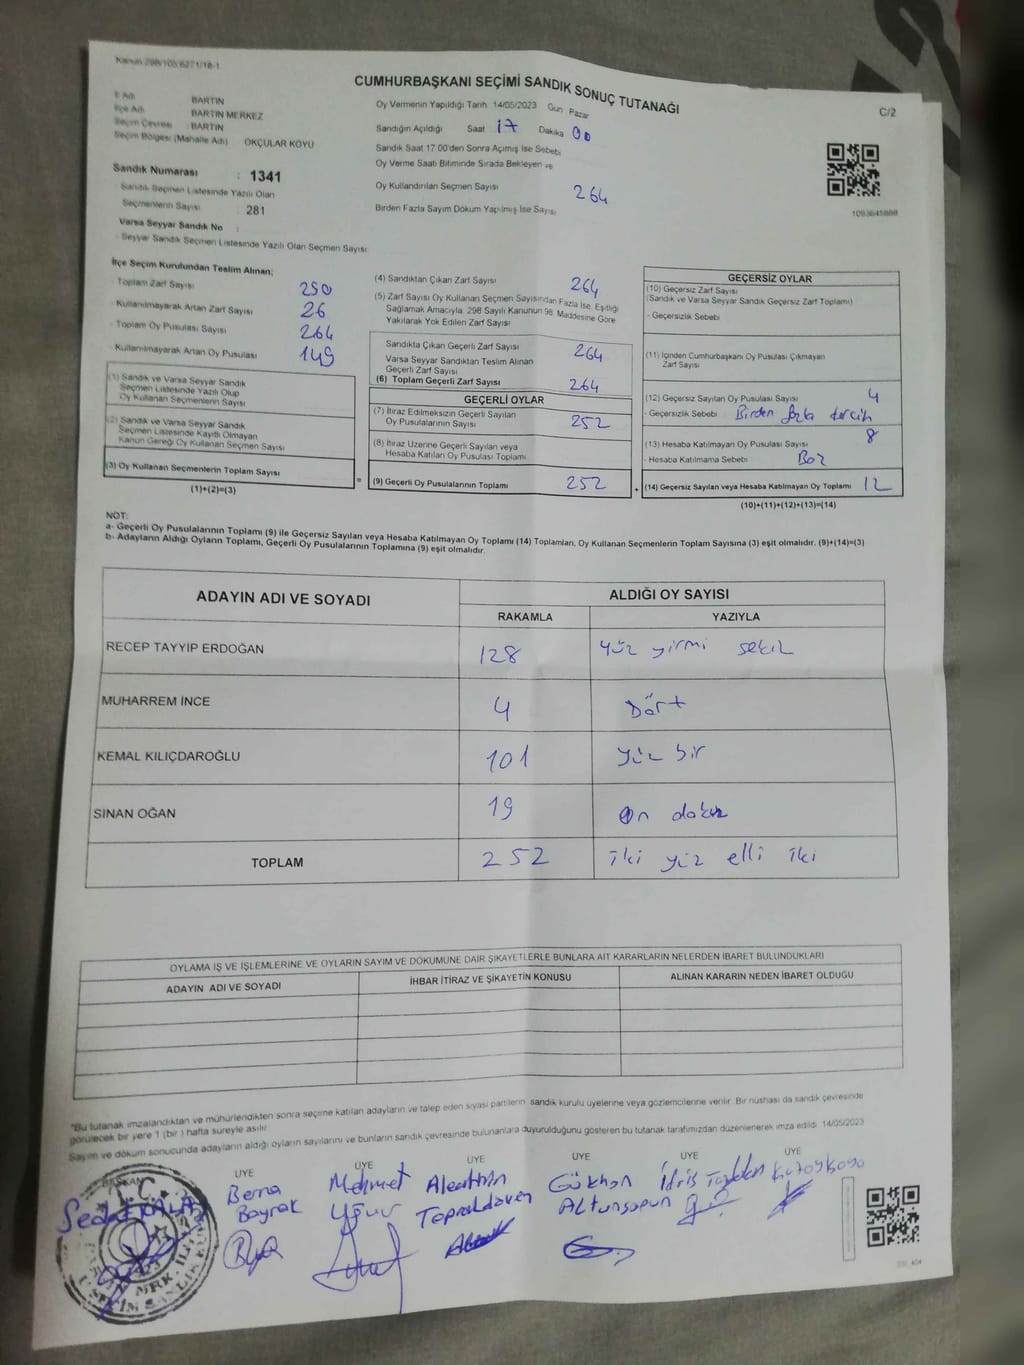 Kanun 298/105/6271/18-1
CUMHURBAŞKANI SEÇİMİ SANDIK SONUÇ TUTANAĞI
C/2
İl Adı BARTIN
İlçe Adı BARTIN MERKEZ
Seçim Çevresi BARTIN
Seçim Bölgesi (Mahalle Adı) OKÇULAR KÖYÜ
Sandık Numarası : 1341
Sandık Seçmen Listesinde Yazılı Olan
Seçmenlerin Sayısı : 281
Varsa Seyyar Sandık No :
Seyyar Sandık Seçmen Listesinde Yazılı Olan Seçmen Sayısı
Oy Vermenin Yapıldığı Tarih 14/05/2023 Gün Pazar
Sandığın Açıldığı Saat 17 Dakika 00
Sandık Saat 17.00'den Sonra Açımış İse Sebebi
Oy Verme Saati Bitiminde Sırada Bekleyen ve
Oy Kullandırılan Seçmen Sayısı 264
Birden Fazla Sayım Döküm Yapılmış İse Sayısı
İlçe Seçim Kurulundan Teslim Alınan;
- Toplam Zarf Sayısı 290
- Kullanılmayarak Artan Zarf Sayısı 26
- Toplam Oy Pusulası Sayısı 264
- Kullanılmayarak Artan Oy Pusulası 149
(1) Sandık ve Varsa Seyyar Sandık
Seçmen Listesinde Yazılı Olup
Oy Kullanan Seçmenlerin Sayısı
(2) Sandık ve Varsa Seyyar Sandık
Seçmen Listesinde Kayıtlı Olmayan
Kanun Gereği Oy Kullanan Seçmen Sayısı
(3) Oy Kullanan Seçmenlerin Toplam Sayısı
(1)+(2)=(3)
=
(4) Sandıktan Çıkan Zarf Sayısı 264
(5) Zarf Sayısı Oy Kullanan Seçmen Sayısından Fazla İse, Eşitliği
Sağlamak Amacıyla 298 Sayılı Kanunun 98. Maddesine Göre
Yakılarak Yok Edilen Zarf Sayısı
Sandıkta Çıkan Geçerli Zarf Sayısı 264
Varsa Seyyar Sandıktan Teslim Alınan
Geçerli Zarf Sayısı
(6) Toplam Geçerli Zarf Sayısı 264
GEÇERLİ OYLAR
(7) İtiraz Edilmeksizin Geçerli Sayılan
Oy Pusulalarının Sayısı 252
(8) İtiraz Üzerine Geçerli Sayılan veya
Hesaba Katılan Oy Pusulası Toplamı
(9) Geçerli Oy Pusulalarının Toplamı 252
+
GEÇERSİZ OYLAR
(10) Geçersiz Zarf Sayısı
(Sandık ve Varsa Seyyar Sandık Geçersiz Zarf Toplamı)
- Geçersizlik Sebebi
(11) İçinden Cumhurbaşkanı Oy Pusulası Çıkmayan
Zarf Sayısı
(12) Geçersiz Sayılan Oy Pusulası Sayısı 4
- Geçersizlik Sebebi Birden fazla tercih
(13) Hesaba Katılmayan Oy Pusulası Sayısı 8
- Hesaba Katılmama Sebebi Boş
(14) Geçersiz Sayılan veya Hesaba Katılmayan Oy Toplamı 12
(10)+(11)+(12)+(13)=(14)
NOT:
a- Geçerli Oy Pusulalarının Toplamı (9) ile Geçersiz Sayılan veya Hesaba Katılmayan Oy Toplamı (14) Toplamları, Oy Kullanan Seçmenlerin Toplam Sayısına (3) eşit olmalıdır. (9)+(14)=(3)
b- Adayların Aldığı Oyların Toplamı, Geçerli Oy Pusulalarının Toplamına (9) eşit olmalıdır.
ADAYIN ADI VE SOYADI
ALDIĞI OY SAYISI
RAKAMLA YAZIYLA
RECEP TAYYİP ERDOĞAN 128 yüz yirmi sekiz
MUHARREM İNCE 4 Dört
KEMAL KILIÇDAROĞLU 101 yüz bir
SİNAN OĞAN 19 on dokuz
TOPLAM 252 iki yüz elli iki
OYLAMA İŞ VE İŞLEMLERİNE VE OYLARIN SAYIM VE DÖKÜMÜNE DAİR ŞİKAYETLERLE BUNLARA AİT KARARLARIN NELERDEN İBARET BULUNDUKLARI
ADAYIN ADI VE SOYADI İHBAR İTİRAZ VE ŞİKAYETİN KONUSU ALINAN KARARIN NEDEN İBARET OLDUĞU
*Bu tutanak imzalandıktan ve mühürlendikten sonra seçime katılan adayların ve talep eden siyasi partilerin sandık kurulu üyelerine veya gözlemcilerine verilir. Bir nüshası da sandık çevresinde
görülecek bir yere 1 (bir) hafta süreyle asılır.
Sayım ve döküm sonucunda adayların aldığı oyların sayılarını ve bunların sandık çevresinde bulunanlara duyurulduğunu gösteren bu tutanak tarafımızdan düzenlenerek imza edildi 14/05/2023
BAŞKAN ÜYE ÜYE ÜYE ÜYE ÜYE ÜYE
Berna Bayrak
Mehmet Uğur
Gökhan
T.C.